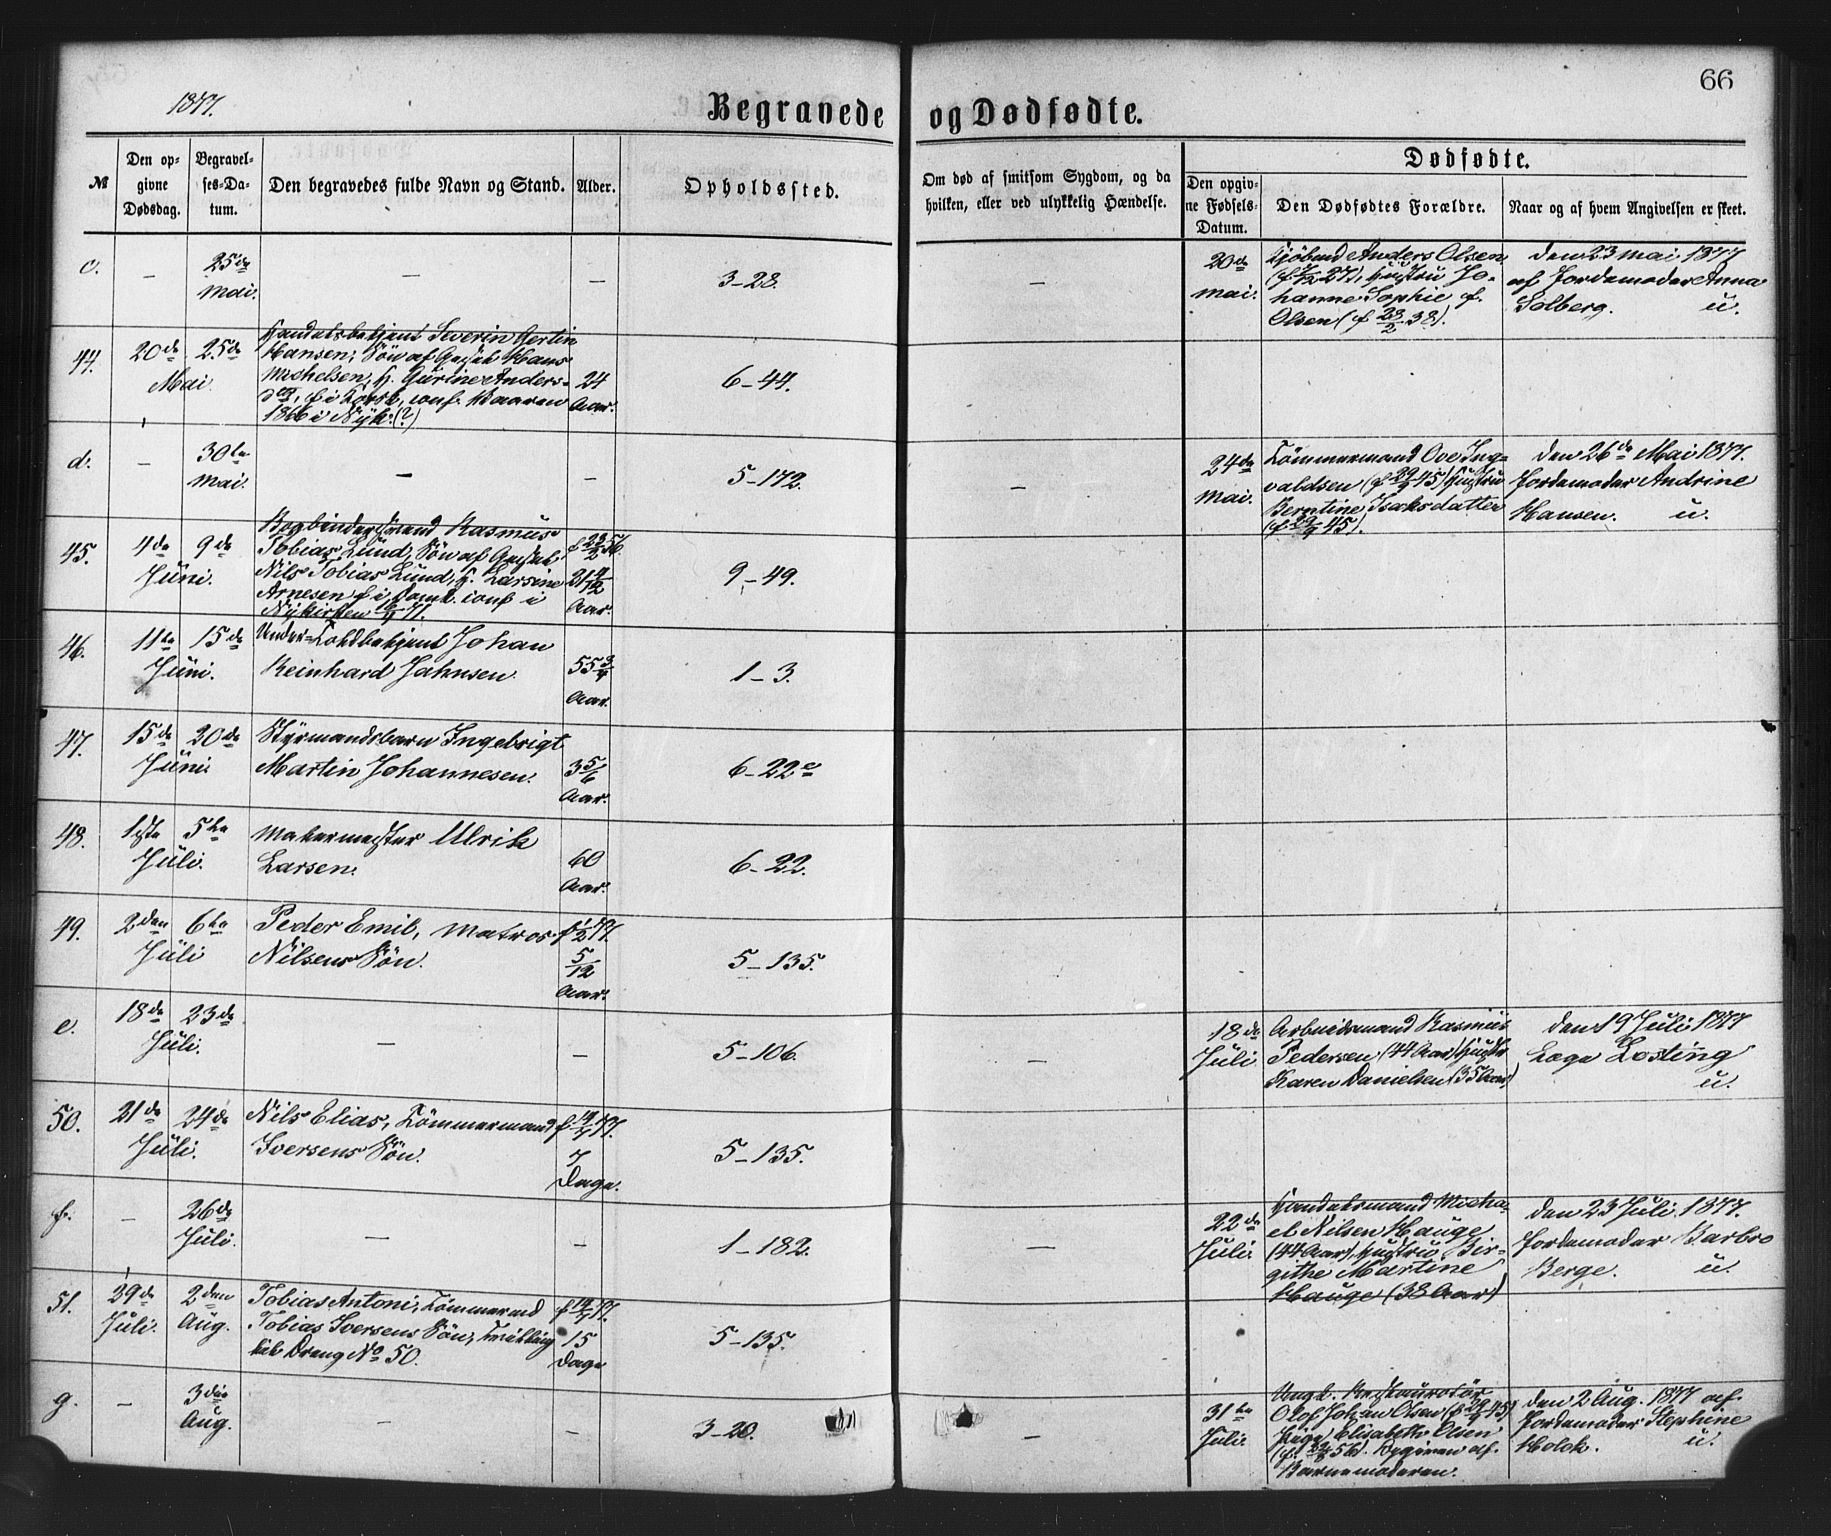 66
1877.
Begravede og Dødfødte.
№
Den opgivne Dødsdag.
Begravelses-Datum.
Den begravedes fulde Navn og Stand.
Alder.
Opholdssted.
Om død af smitsom Sygdom, og da hvilken, eller ved ulykkelig Hændelse.
Dødfødte.
Den opgivne Fødsels-Datum.
Den Dødfødtes Forældre.
Naar og af hvem Angivelsen er skeet.
c. – 25de Mai. – – 3–28.
20de Mai.
Anders Olsen
Hustru Johanne Sophie f.
Olsen (f 28/2 38).
den 23 Mai 1877
af Jordemoder Anna
Solberg. u.
44. 20de Mai 25de
Handelsbetjent Severin Gertin
Hansen, Søn af Gastab Hans
Michelsen, H. Gurine Anders-
conf. Vaaren
1866 i Nyk: (?)
24 Aar.
6–44.
d. – 30te Mai. – – 5–172. –
24de Mai.
Tömmermand Ove Ing-
valdsen (f 29/9 45) Hustru
Berntine Isaksdatter
den 26de Mai 1877.
Jordemoder Andrine
Hansen. u.
45. 4de Juni. 9de
Bogbindersvend Rasmus
Tobias Lund, Søn af Gastab
Nils Tobias Lund, H. Larsine
Arnesen f i Domk. conf i
Nykirken 71.
9–49.
46. 11te Juni. 15de
Under-Toldbetjent Johan
Reinhard Jahnsen.
55 3/4 Aar.
1–3.
47. 15de Juni 20de
Styrmandsbarn Ingebrigt
Martin Johannesen.
3 5/6 Aar.
6–22c
48. 1ste Juli. 5te
Malermester Ulrik
Larsen.
60 Aar.
6–22.
49. 2den Juli 6te
Peder Emil, Matros
Nilsens Søn.
f 1/2 77.
5/12 Aar.
5–135.
e. 18de Juli. 23de – – 5–106.
18de Juli
Arbeidsmand Rasmus
Pedersen (44 Aar) Hustr
Karen Danielsen (35 Aar)
den 19 Juli 1877
Læge Losting
u.
50. 21de Juli. 24de
Nils Elias, Tömmermand
Iversens Søn.
f 14/7 77.
7 Dage.
5–135.
f. – 26de Juli. – – 1–182. –
22de Juli.
Handelsmand Micha-
el Nilsen Hauge
(44 Aar), Hustru Bir-
githe Martine
Hauge (38 Aar)
den 23 Juli 1877.
Jordemoder Barbro
Berge. u.
51. 29de Juli. 2den Aug.
Tobias Antoni, Tömmermd
Tobias Iversens Søn, Tvilling
til Dreng No 50.
f 14/7 77.
15 Dage
5–135.
g. – 3die Aug. – – 3–20. –
31te Juli.
Ungk. Restauratör
Olof Johan Olsen (f 29/9 45)
Pige Elisabeth Olsen
Opgiven af
Barnemoderen.
den 2 Aug. 1877 af
Jordemoder Stephine
Holck. u.